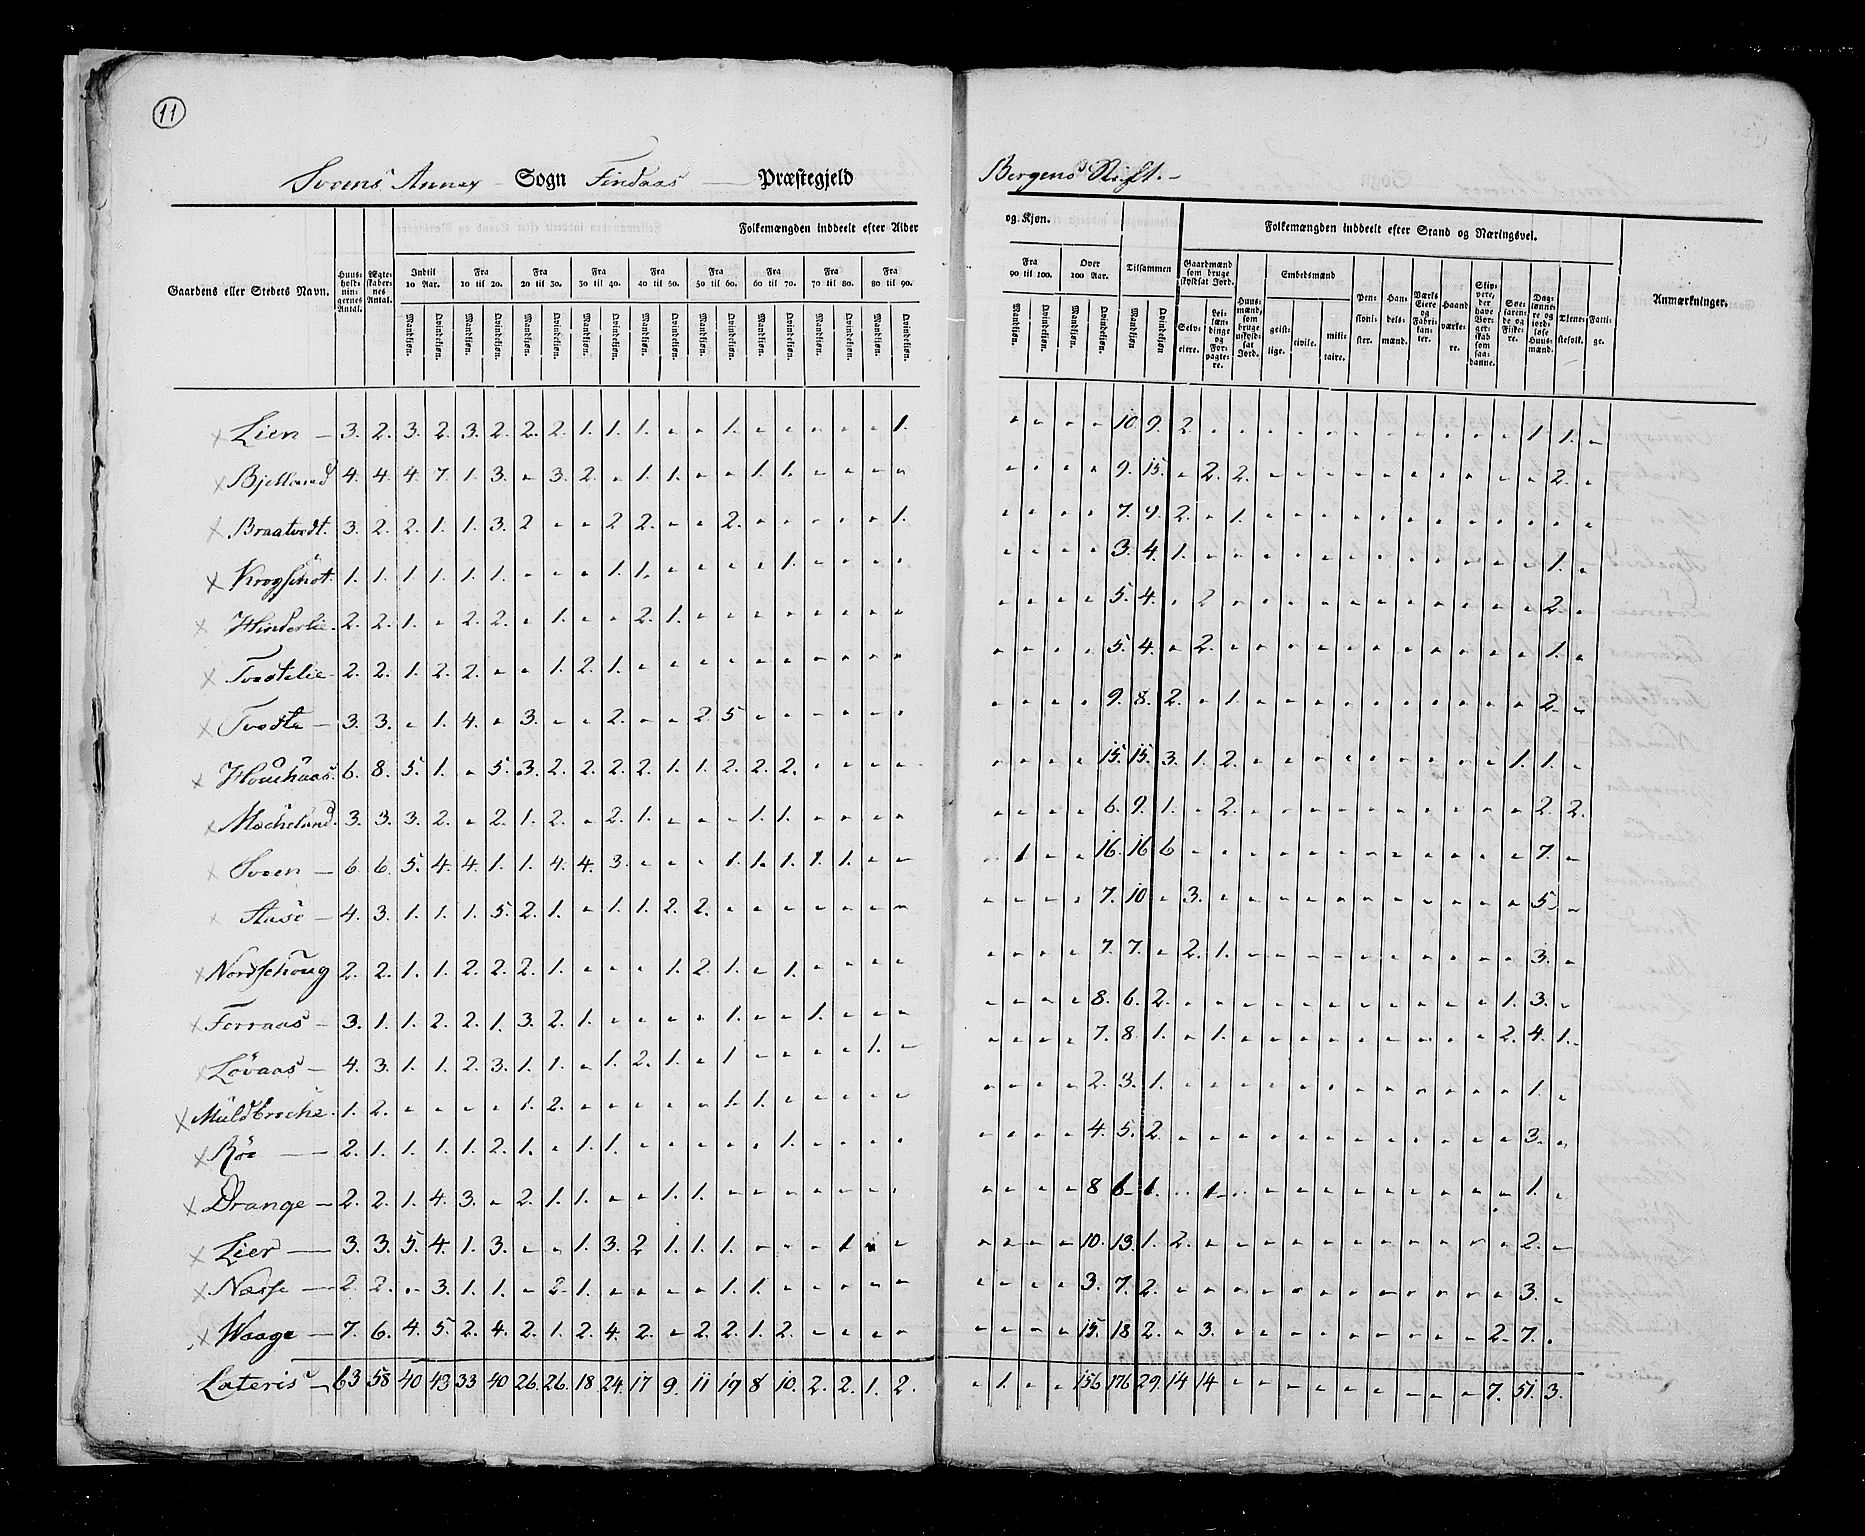 11
Sveens Annex Sogn Findaas Præstegjeld
Bergens Stift.
Gaardens eller Stedets Navn.
Huus-holdnin-gernes Antal.
Ægte-skaber-nes Antal.
Folkemængden inddeelt efter Alder
og Kjøn.
Indtil 10 Aar.
Fra 10 til 20.
Fra 20 til 30.
Fra 30 til 40.
Fra 40 til 50.
Fra 50 til 60.
Fra 60 til 70.
Fra 70 til 80.
Fra 80 til 90.
Fra 90 til 100.
Over 100 Aar.
Tilsammen
Mandkjøn. Qvindekjøn.
Folkemængden inddeelt efter Stand og Næringsvei.
Gaardmænd som bruge skyldsat Jord.
Selv-eiere.
Lei-lændinge og For-pagte-re.
Huus-mænd, som bruge uskyld-sat Jord.
Embedsmænd
geist-lige.
civile.
mili-taire.
Pen-sioni-ster.
Han-dels-mænd.
Værks Eiere og Fabri-kan-ter.
Haand-værke-re.
Skip-pere, der have Bor-ger-skab som saa-danne.
Søe-faren-de og Fiske-re.
Dag-lønne-re og jord-løse Huus-mænd.
Tjene-stefolk.
Fatti-ge.
Anmærkninger.
Lien 3. 2. 3. 2. 3. 2. 2. 2. 1. 1. 1. - - 1. - - - - - 1. - - - - 10. 9. 2. - - - - - - - - - - - 1. 1. -
Bjelland 4. 4. 4. 7. 1. 3. - 3. 2. - 1. 1. - - 1. 1. - - - - - - - - 9. 15. - 2. 2. - - - - - - - - - - 2. -
Braatvedt. 3. 2. 2. 1. 1. 3. 2 - - 2 2. - - 2. - - - - - 1. - - - - 7. 9. 2. - 1. - - - - - - - - - - - -
Krogschot. 1. 1. 1. 1. 1. 1. - - - 1. 1. - - - - 1. - - - - - - - - 3. 4. 1. - - - - - - - - - - - - 1. -
Hinderlie. 2. 2. 1. - 2. 2. - 1. - - 2. 1. - - - - - - - - - - - - 5. 4. - 2 - - - - - - - - - - - 2. -
Tvedtelie. 2. 2. 1. 2. 2. - - 1. 2. 1. - - - - - - - - - - - - - - 5. 4. - 2. - - - - - - - - - - - 1. -
Tvedte 3. 3. - 1. 4. - 3. - - 2. - - 2. 5 - - - - - - - - - - 9. 8. 2. - 1. - - - - - - - - - - 2. -
Houchaas. 6. 8. 5. 1. - 5. 3. 2. 2. 2. 2. 1. 1. 2. 2. 2. - - - - - - - - 15. 15. 3. 1. 2. - - - - - - - - - 1. 1. -
Mæcheland. 3. 3. 3. 2. - 2. 1. 2. - 2. 1. - - - 1. 1. - - - - - - - - 6. 9. 1. - 2. - - - - - - - - - - 2. 2.
Sveen 6. 6. 5. 4. 4. 1. 1. 4. 4. 3. - - - 1. 1. 1. 1. 1. - - - 1. - - 16. 16 6 - - - - - - - - - - - - 7. -
4. 3. 1. 1. 1. 5. 2. 1. - 1. 1. 2. 2. - - - - - - - - - - - 7. 10 - 3. - - - - - - - - - - - 5. -
Nordschoug 2. 2. 1. 1. 2. 2. 2. 1. - - - 1. 2. 1. - 1. - - - - - - - - 7. 7. - 2. 1. - - - - - - - - - - 3. -
Forraas 3. 1. 1. 2. 2. 1. 3. 2. 1. - - - - 1. - - 1. - - - - - - - 8. 6. 2. - - - - - - - - - - - 1. 3. -
Lövaas 4. 3. 1. 1. 2. 3. 1. 1. - 1. 2. 1. - 1 - - - - 1. - - - - - 7. 8. 1. - 1. - - - - - - - - - 2. 4. 1.
Muldbroche. 1. 2. - - - - 1. 2. - - - - - 1. 1. - - - - - - - - - 2. 3. 1. - - - - - - - - - - - - 1. -
Röe 2. 1. 1. 1. 1. 2. 1. - 1. 1. - - - - - 1. - - - - - - - - 4. 5. 2. - - - - - - - - - - - - 3. -
Drange 2. 2. 1. 4. 3. - 2. 1. 1. - - 1. 1. - - - - - - - - - - - 8 6 1. - 1 - - - - - - - - - - 1. -
Lier 3. 3. 5. 4. 1. 3. - - 1. 3. 2 1. 1. 1. - - - 1 - - - - - - 10. 13. 1. 2. - - - - - - - - - - - 2. -
Næsse 2. 2. - 3. 1. 1. - 2. 1. - - - - 1. 1. - - - - - - - - - 3. 7. 2. - - - - - - - - - - - - 3. -
Waage 7. 6. 4. 5. 2. 4. 2. 1. 2. 4. 2. - 2. 2. 1. 2. - - - - - - - - 15. 18 2. - 3. - - - - - - - - - 2. 7. -
Lateris 63 58 40 43 33 40 26. 26. 18 24. 17 9. 11 19 8 10. 2. 2. 1. 2. - 1. - - 156 176 29. 14 14 - - - - - - - - - 7. 51. 3.